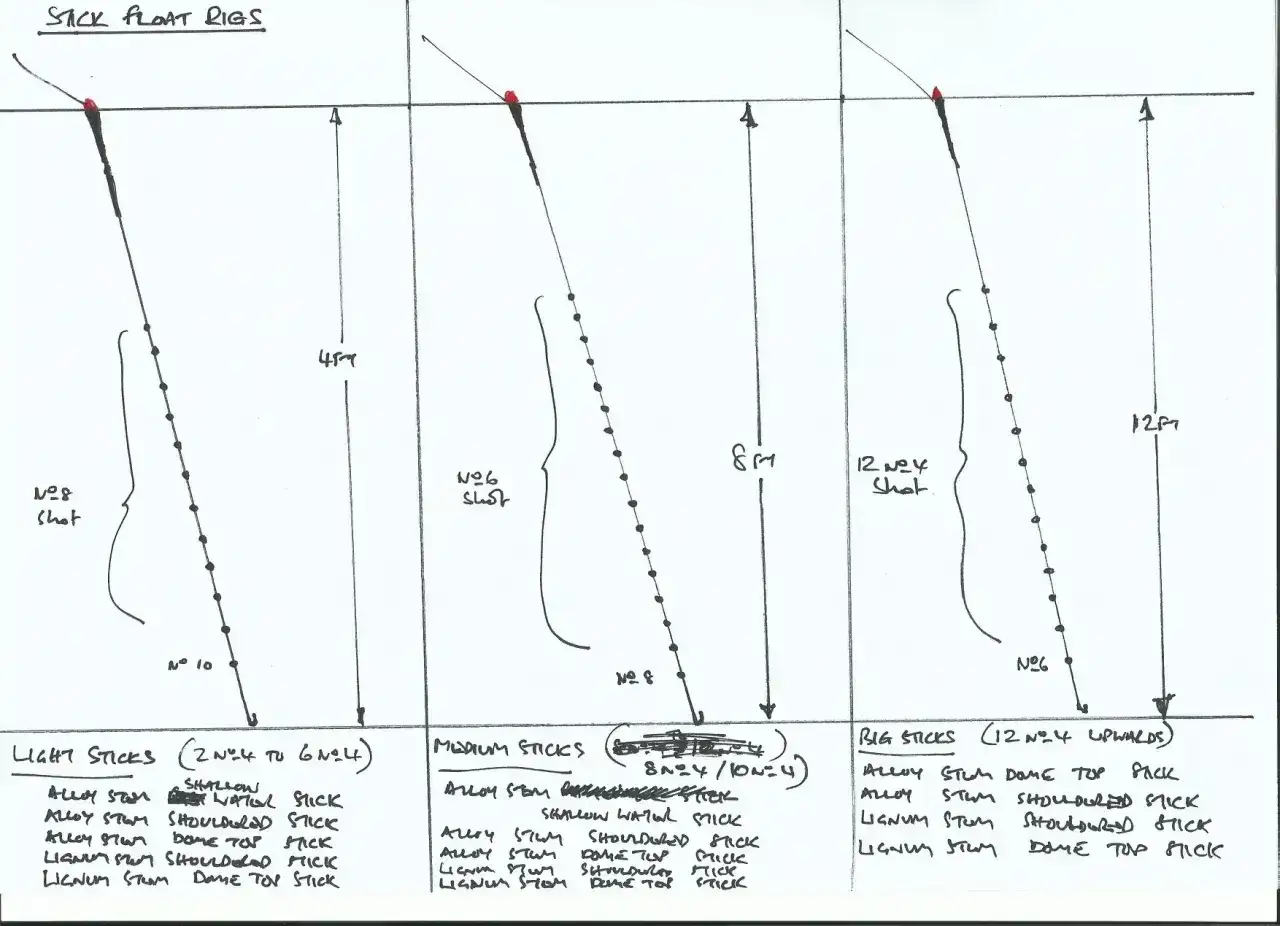 STICK FLOAT RIGS
4FT
No8
Shot
No 10
LIGHT STICKS (2 No4 TO 6 No4)
SHALLOW
ALLOY STEM WATER STICK
ALLOY STEM SHOULDERED STICK
ALLOY STEM DOME TOP STICK
LIGNUM STEM SHOULDERED STICK
LIGNUM STEM DOME TOP STICK
8FT
No6
Shot
No 8
MEDIUM STICKS
8 No4 / 10 No4)
ALLOY STEM STICK
SHALLOW WATER STICK
ALLOY STEM SHOULDERED STICK
ALLOY STEM DOME TOP STICK
LIGNUM STEM SHOULDERED STICK
LIGNUM STEM DOME TOP STICK
12FT
12 No4
Shot
No6
BIG STICKS (12 No4 UPWARDS)
ALLOY STEM DOME TOP STICK
ALLOY STEM SHOULDERED STICK
LIGNUM STEM SHOULDERED STICK
LIGNUM STEM DOME TOP STICK